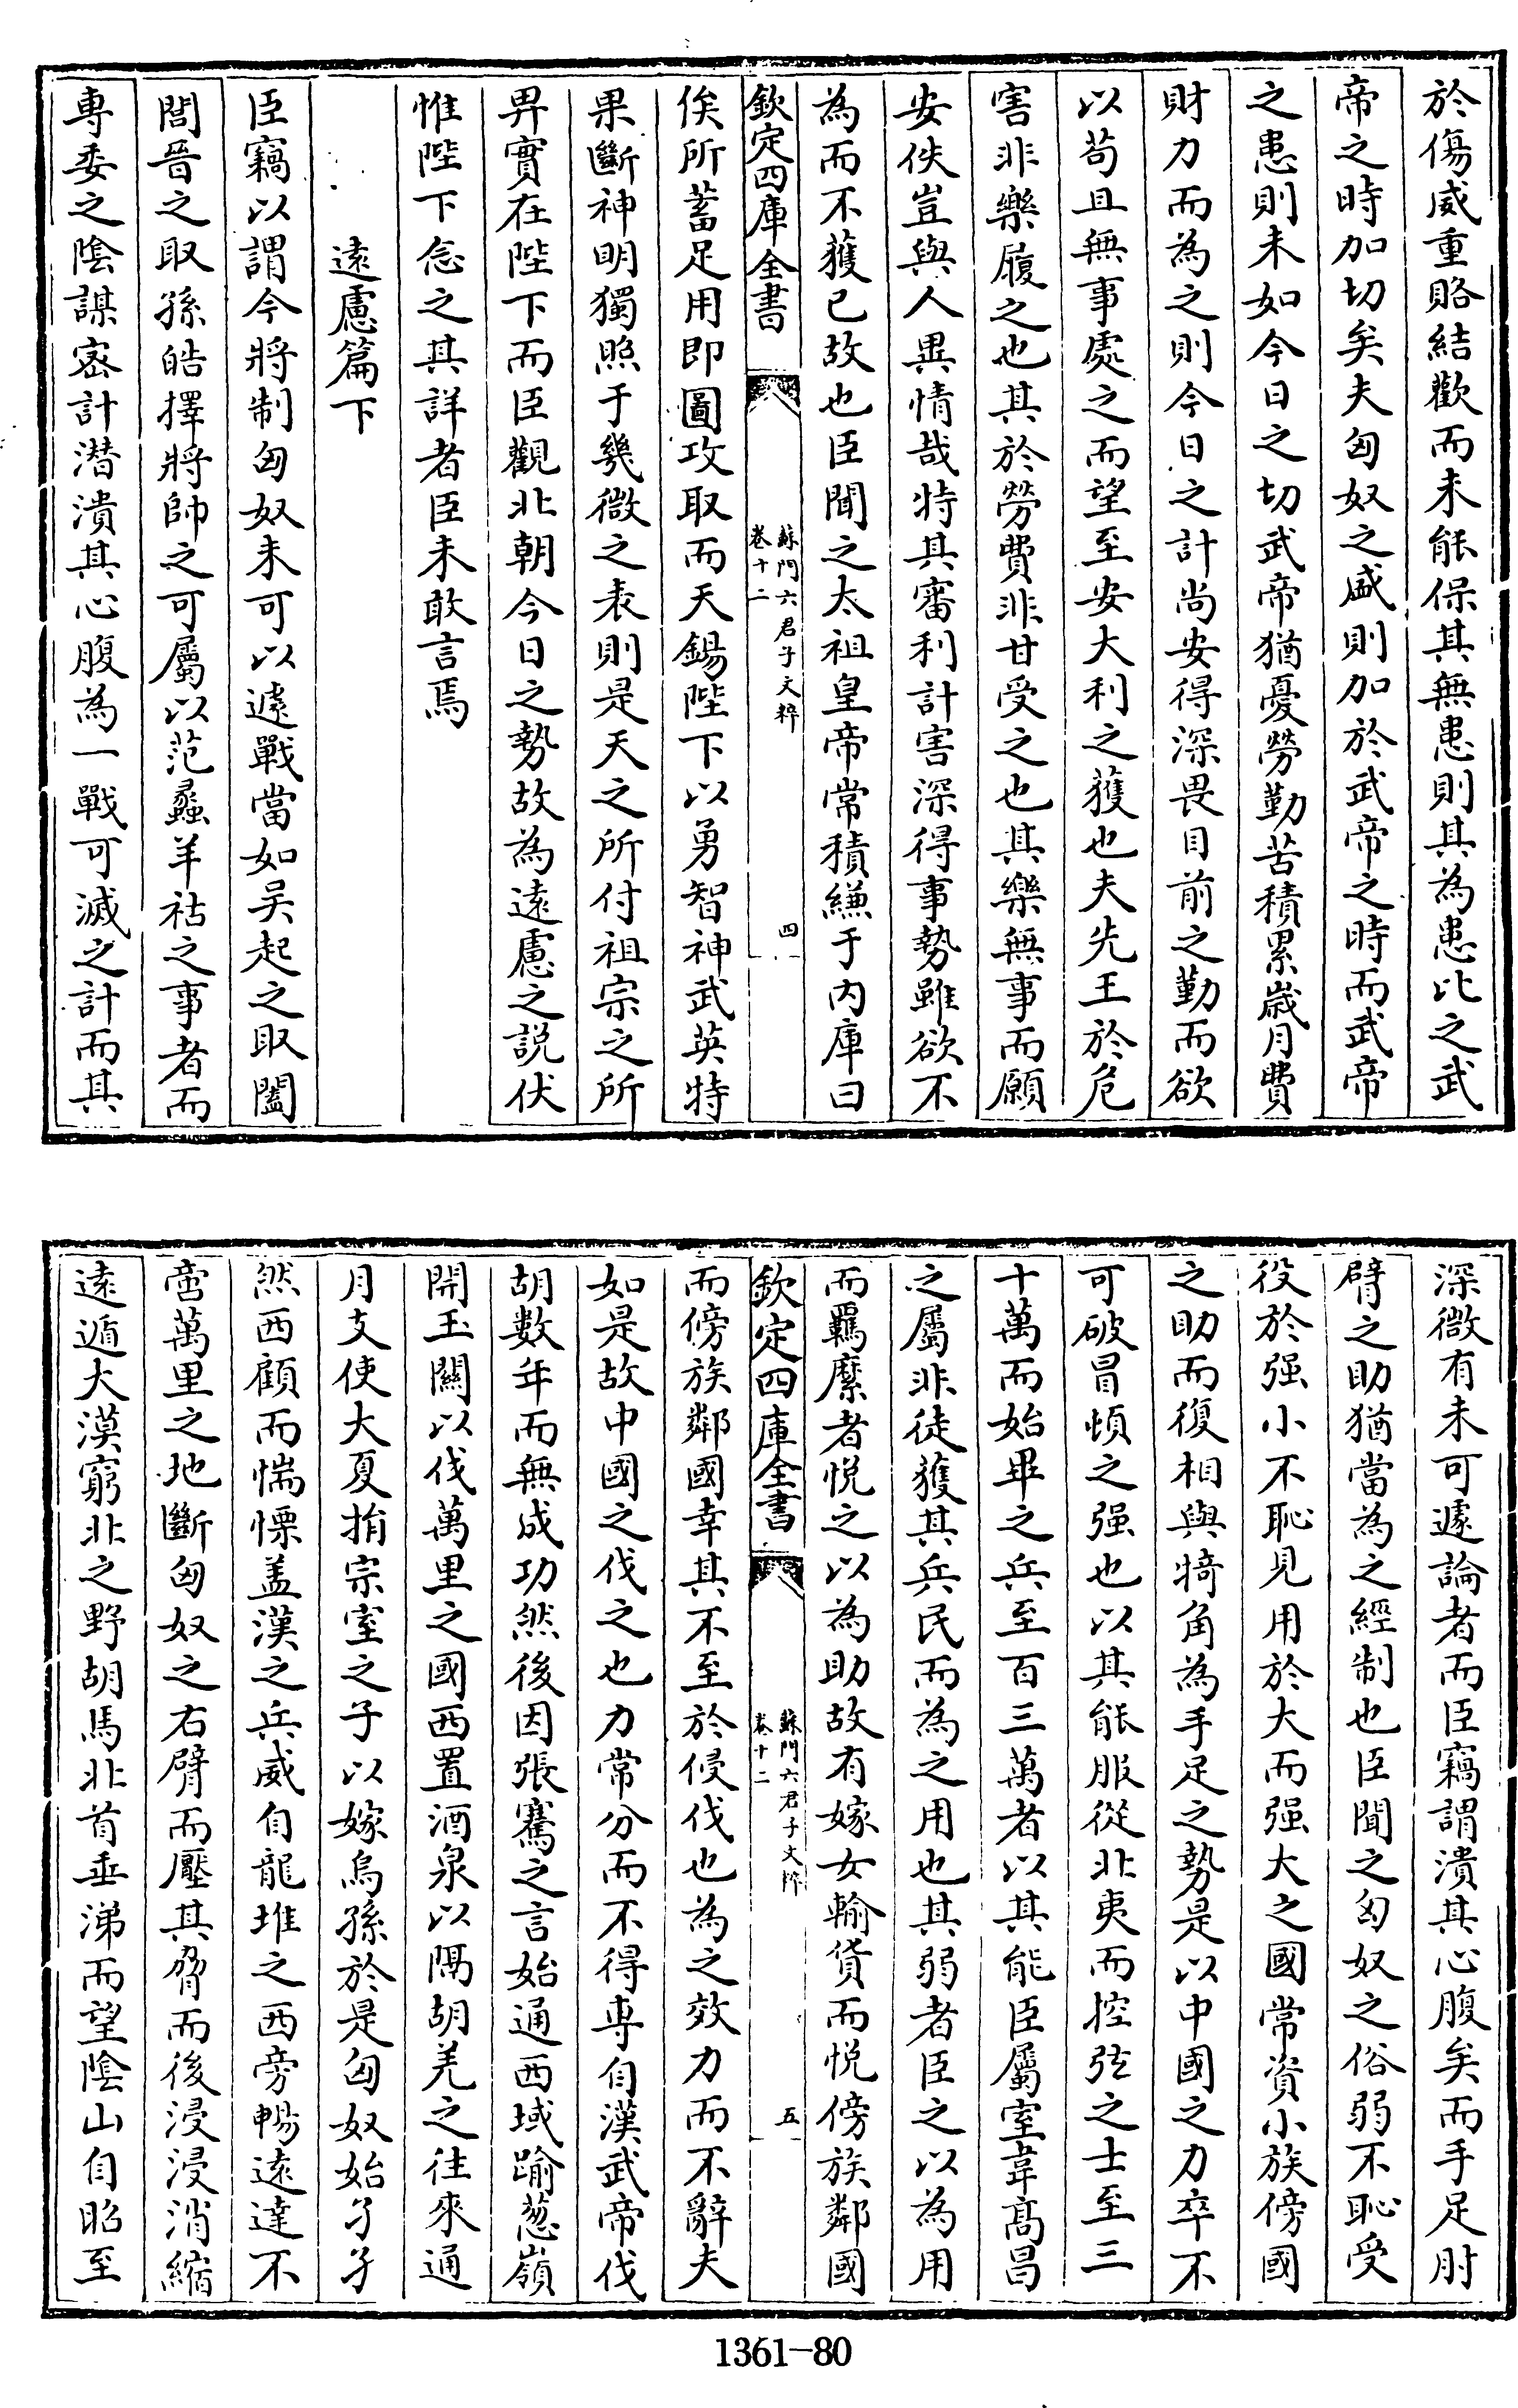 於傷威重賂結歡而未能保其無患則其為患比之武
帝之時加切矣夫匈奴之盛則加於武帝之時而武帝
之患則未如今日之切武帝猶憂勞勤苦積累歲月費
財力而為之則今日之計尚安得深畏目前之勤而欲
以苟且無事處之而望至安大利之獲也夫先王於危
害非樂履之也其於勞費非甘受之也其樂無事而願
安佚豈與人異情哉特其審利計害深得事勢雖欲不
為而不獲已故也臣聞之太祖皇帝常積縑于内庫曰
欽定四庫全書
蘇門六君子文粹
卷十二
四
俟所蓄足用即圖攻取而天錫陛下以勇智神武英特
果斷神明獨照于幾微之表則是天之所付祖宗之所
畀實在陛下而臣觀北朝今日之勢故為遠慮之説伏
惟陛下念之其詳者臣未敢言焉
遠慮篇下
臣竊以謂今將制匈奴未可以遽戰當如吴起之取闔
閭晉之取孫皓擇將帥之可屬以范蠡羊祜之事者而
專委之陰謀宻計潛潰其心腹為一戰可滅之計而其
深微有未可遽論者而臣竊謂潰其心腹矣而手足肘
臂之助猶當為之經制也臣聞之匈奴之俗弱不恥受
役於强小不恥見用於大而强大之國常資小族傍國
之助而復相與犄角為手足之勢是以中國之力卒不
可破冒頓之强也以其能服從北夷而控弦之士至三
十萬而始畢之兵至百三萬者以其能臣屬室韋髙昌
之屬非徒獲其兵民而為之用也其弱者臣之以為用
而羈縻者悦之以為助故有嫁女輸貨而悦傍族鄰國
欽定四庫全書
蘇門六君子文粹
卷十二
五
而傍族鄰國幸其不至於侵伐也為之效力而不辭夫
如是故中國之伐之也力常分而不得専自漢武帝伐
胡數年而無成功然後因張騫之言始通西域踰葱嶺
開玉關以伐萬里之國西置酒泉以隔胡羌之往來通
月支使大夏捐宗室之子以嫁烏孫於是匈奴始孑孑
然西顧而惴慄盖漢之兵威自龍堆之西旁暢遠達不
啻萬里之地斷匈奴之右臂而壓其脅而後浸浸消縮
遠遁大漠窮北之野胡馬北首垂涕而望陰山自昭至
1361-80